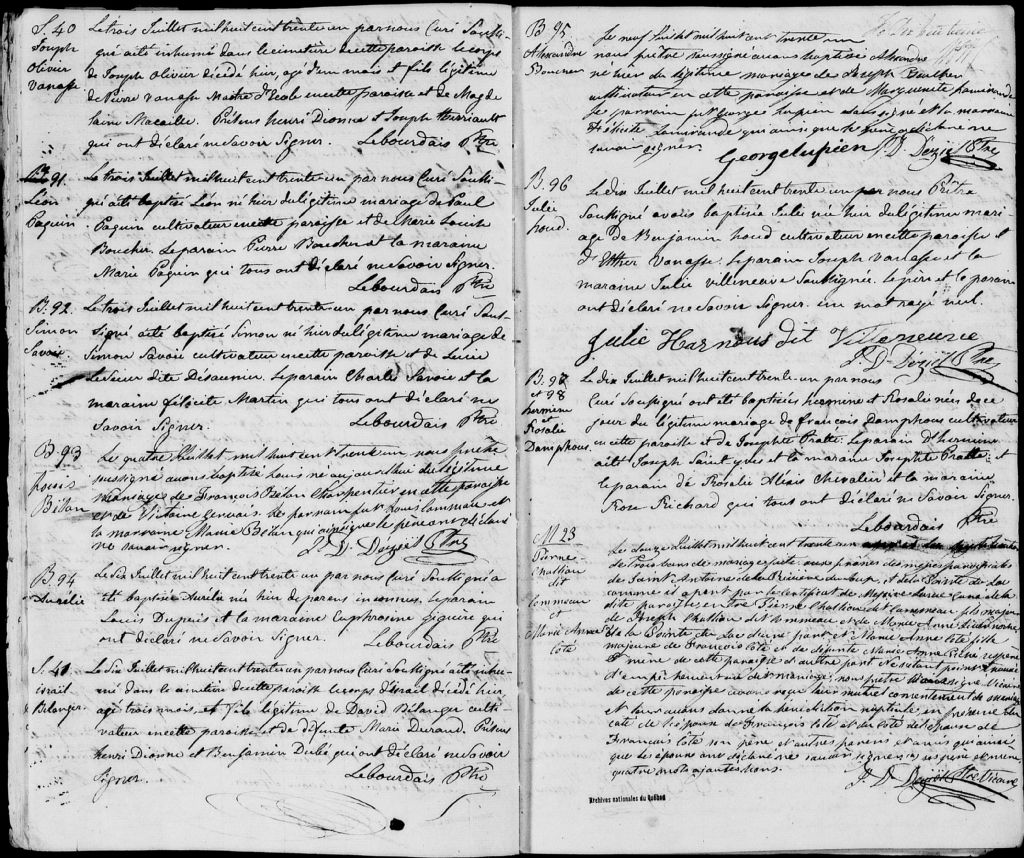 S. 40
Joseph
Olivier
Vanasse
Le trois Juillet mil huit cent trente-un par nous Curé Sousi-
gné a été inhumé dans le cimetière de cette paroisse le corps
de Joseph Olivier décédé hier, agé d'un mois et fils légitime
de Pierre Vanasse Maitre d'école en cette paroisse et de Magde
laine Macaille. Présens henri Dionne et Joseph Therriault
qui ont déclaré ne Savoir Signer. Lebourdais Ptre
B. 91.
Léon
Paquin
Le trois Juillet mil huit cent trente-un par nous Curé Sousi-
gné a été baptisé Léon né hier du légitime mariage de Paul
Paquin cultivateur en cette paroisse et de Marie Louise
Boucher. Le parain Pierre Boucher et la maraine
Marie Paquin qui tous ont déclaré ne Savoir Signer.
Lebourdais Ptre
B. 92.
Simon
Savoie
Le trois Juillet mil huit cent trente-un par nous Curé Sous-
Signé a été baptisé Simon né hier du légitime mariage de
Simon Savoie cultivateur en cette paroisse et de Lucie
LeSieur dite Désaunier. Le parain Charles Savoie et la
maraine félicité Martin qui tous ont déclaré ne
Savoir Signer. Lebourdais Ptre
B 93
Louis
Bélan
Le quatre Juillet mil huit cent trente un nous prêtre
sussigné avons baptisé Louis né aujourd'hui du légitime
mariage de François Bélan Charpentier en cette paroisse
et de Victoire Gervais. Le parrain fut Louis Commeau et
la marraine Marie Bélan qui ainsi que le père ont déclaré
ne savoir signer. J. D. Déziel Ptre
B. 94
Aurélie
Le Six Juillet mil huit cent trente-un par nous Curé Sousigné a
été baptisée Aurélie née hier de parens inconnus. Le parain
Louis Dupuis et la maraine Euphrosine Giguière qui
ont déclaré ne Savoir Signer. Lebourdais Ptre
S. 41
israël
Bélanger.
Le dix Juillet mil huit cent trente-un par nous Curé Sousigné a été inhu-
mé dans le cimetière de cette paroisse le corps d'israël décédé hier,
agé trois mois, et fils légitime de David Bélanger culti-
vateur en cette paroisse et de défunte Marie Durand. Présens
henri Dionne et Benjamin Dubé qui ont déclaré ne Savoir
Signer. Lebourdais Ptre
B 95
Alexandre
Boucher
Le neuf Juillet mil huit cent trente un
nous prêtre soussigné avons baptisé Alexandre
né hier du légitime mariage de Joseph Boucher
cultivateur en cette paroisse et de Marguerite Lamirande
Le parrain fut George Lupien Soussigné et la marraine
Félicité Lamirande qui ainsi que le père a déclaré ne
savoir signer.
George Lupien J. D. Déziel Ptre
B. 96
Julie
houd.
Le dix Juillet mil huit cent trente-un par nous Prêtre
Sousigné avons baptisée Julie née hier du légitime mari-
age de Benjamin houd cultivateur en cette paroisse et
d'Esther Vanasse. Le parain Joseph Vanasse et la
maraine Julie villeneuve Sousignée. Le père et le parain
ont déclaré ne Savoir Signer. un mot rayé nul.
Julie Harnous dit Villeneuve
J. D. Déziel Ptre
B. 97
et 98
hermine
et
Rosalie
Damphous.
Le dix Juillet mil huit cent trente-un par nous
Curé Sousigné ont été baptisées hermine et Rosalie nées de ce
jour du légitime mariage de françois Damphous cultivateur
en cette paroisse et de Josephte Pratte. Le parain d'hermine
a été Joseph Saint-yves et la maraine Josephte Pratte et
le parain de Rosalie Alexis Chevalier et la maraine
Rose Richard qui tous ont déclaré ne Savoir Signer.
Lebourdais Ptre
M 23
Pierre
Chaillou
dit
Commeau
et
Marie Anne
Coté
Le douze Juillet mil huit cent trente un
de trois bans de mariage faite aux prônes des messes paroissiales
de Saint Antoine de la Rivière du Loup, et de la Pointe du Lac
comme il apert par le certificat de Messire Curé de la
dite paroisse, entre Pierre Chaillou dit Commeau fils majeur
de Joseph Chaillou dit Commeau et de Marie Anne
de la Pointe du Lac d'une part, et Marie Anne Coté fille
majeure de François Coté et de défunte Marie Anne ses père
et mère de cette paroisse d'autre part ne s'étant point trouvé
d'empêchement au dit mariage, nous prêtre soussigné Vicaire
de cette paroisse avons reçu leur mutuel consentement de mariage
et leur avons donné la bénédiction nuptiale en présence du
côté de l'époux de François Coté et du côté de l'épouse de
François Coté son père et autres parens et amis qui ainsi
que les époux ont déclaré ne savoir signer.
quatre mots ajoutés bons.
J. D. Déziel Ptre Vicaire
Archives nationales du Québec